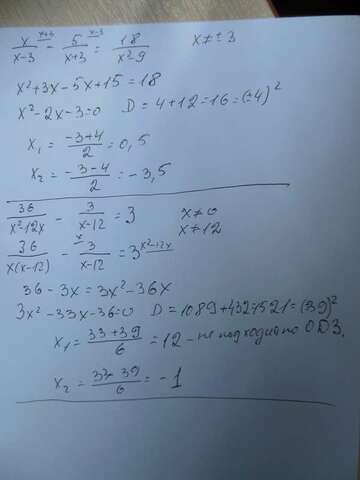 x/(x-3) ^(x+3) - 5/(x+3) ^(x-3) = 18/(x²-9)   x ≠ ±3
x²+3x-5x+15=18
x²-2x-3=0   D = 4+12=16=(±4)²
x₁ = (-3+4)/2 = 0,5
x₂ = (-3-4)/2 = -3,5
36/(x²-12x) - 3/(x-12) = 3   x≠0
x≠12
36/(x(x-12)) - ^x 3/(x-12) = 3 ^(x²-12x)
36-3x=3x²-36x
3x²-33x-36=0   D=1089+432=1521=(39)²
x₁ = (33+39)/6 = 12 - не подходит по ОДЗ.
x₂ = (33-39)/6 = -1